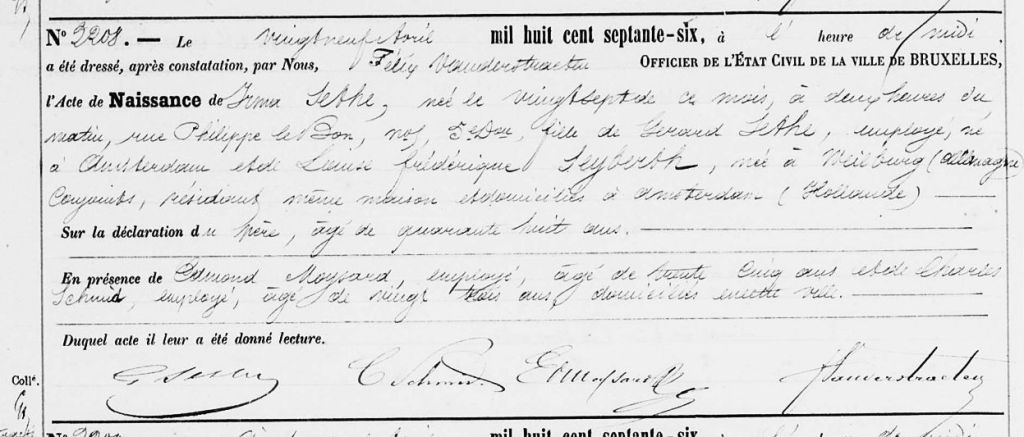 N° 2208. — Le vingt neuf Avril mil huit cent septante-six, à l' heure de midi
a été dressé, après constatation, par Nous, Félix Vanderstraeten OFFICIER DE L'ÉTAT CIVIL DE LA VILLE DE BRUXELLES,
l'Acte de Naissance de Irma Sethe, née le vingt sept de ce mois, à deux heures du
matin, rue Philippe le Bon, n° 5, 3e Don, fille de Gérard Sethe, employé, né
à Amsterdam et de Louise frédérique Seyberth, née à Weilburg (Allemagne)
Conjoints, résidant même maison et domiciliés à Amsterdam (Hollande) —
Sur la déclaration du père, âgé de quarante huit ans. —
En présence de Edmond Moysard, employé, âgé de trente cinq ans et de Charles
Schmid, employé, âgé de vingt trois ans, domiciliés en cette ville. —
Duquel acte il leur a été donné lecture.
Collé.
G Sethe C Schmid. E Moysard F Vanderstraeten
mil huit cent septante-six, à